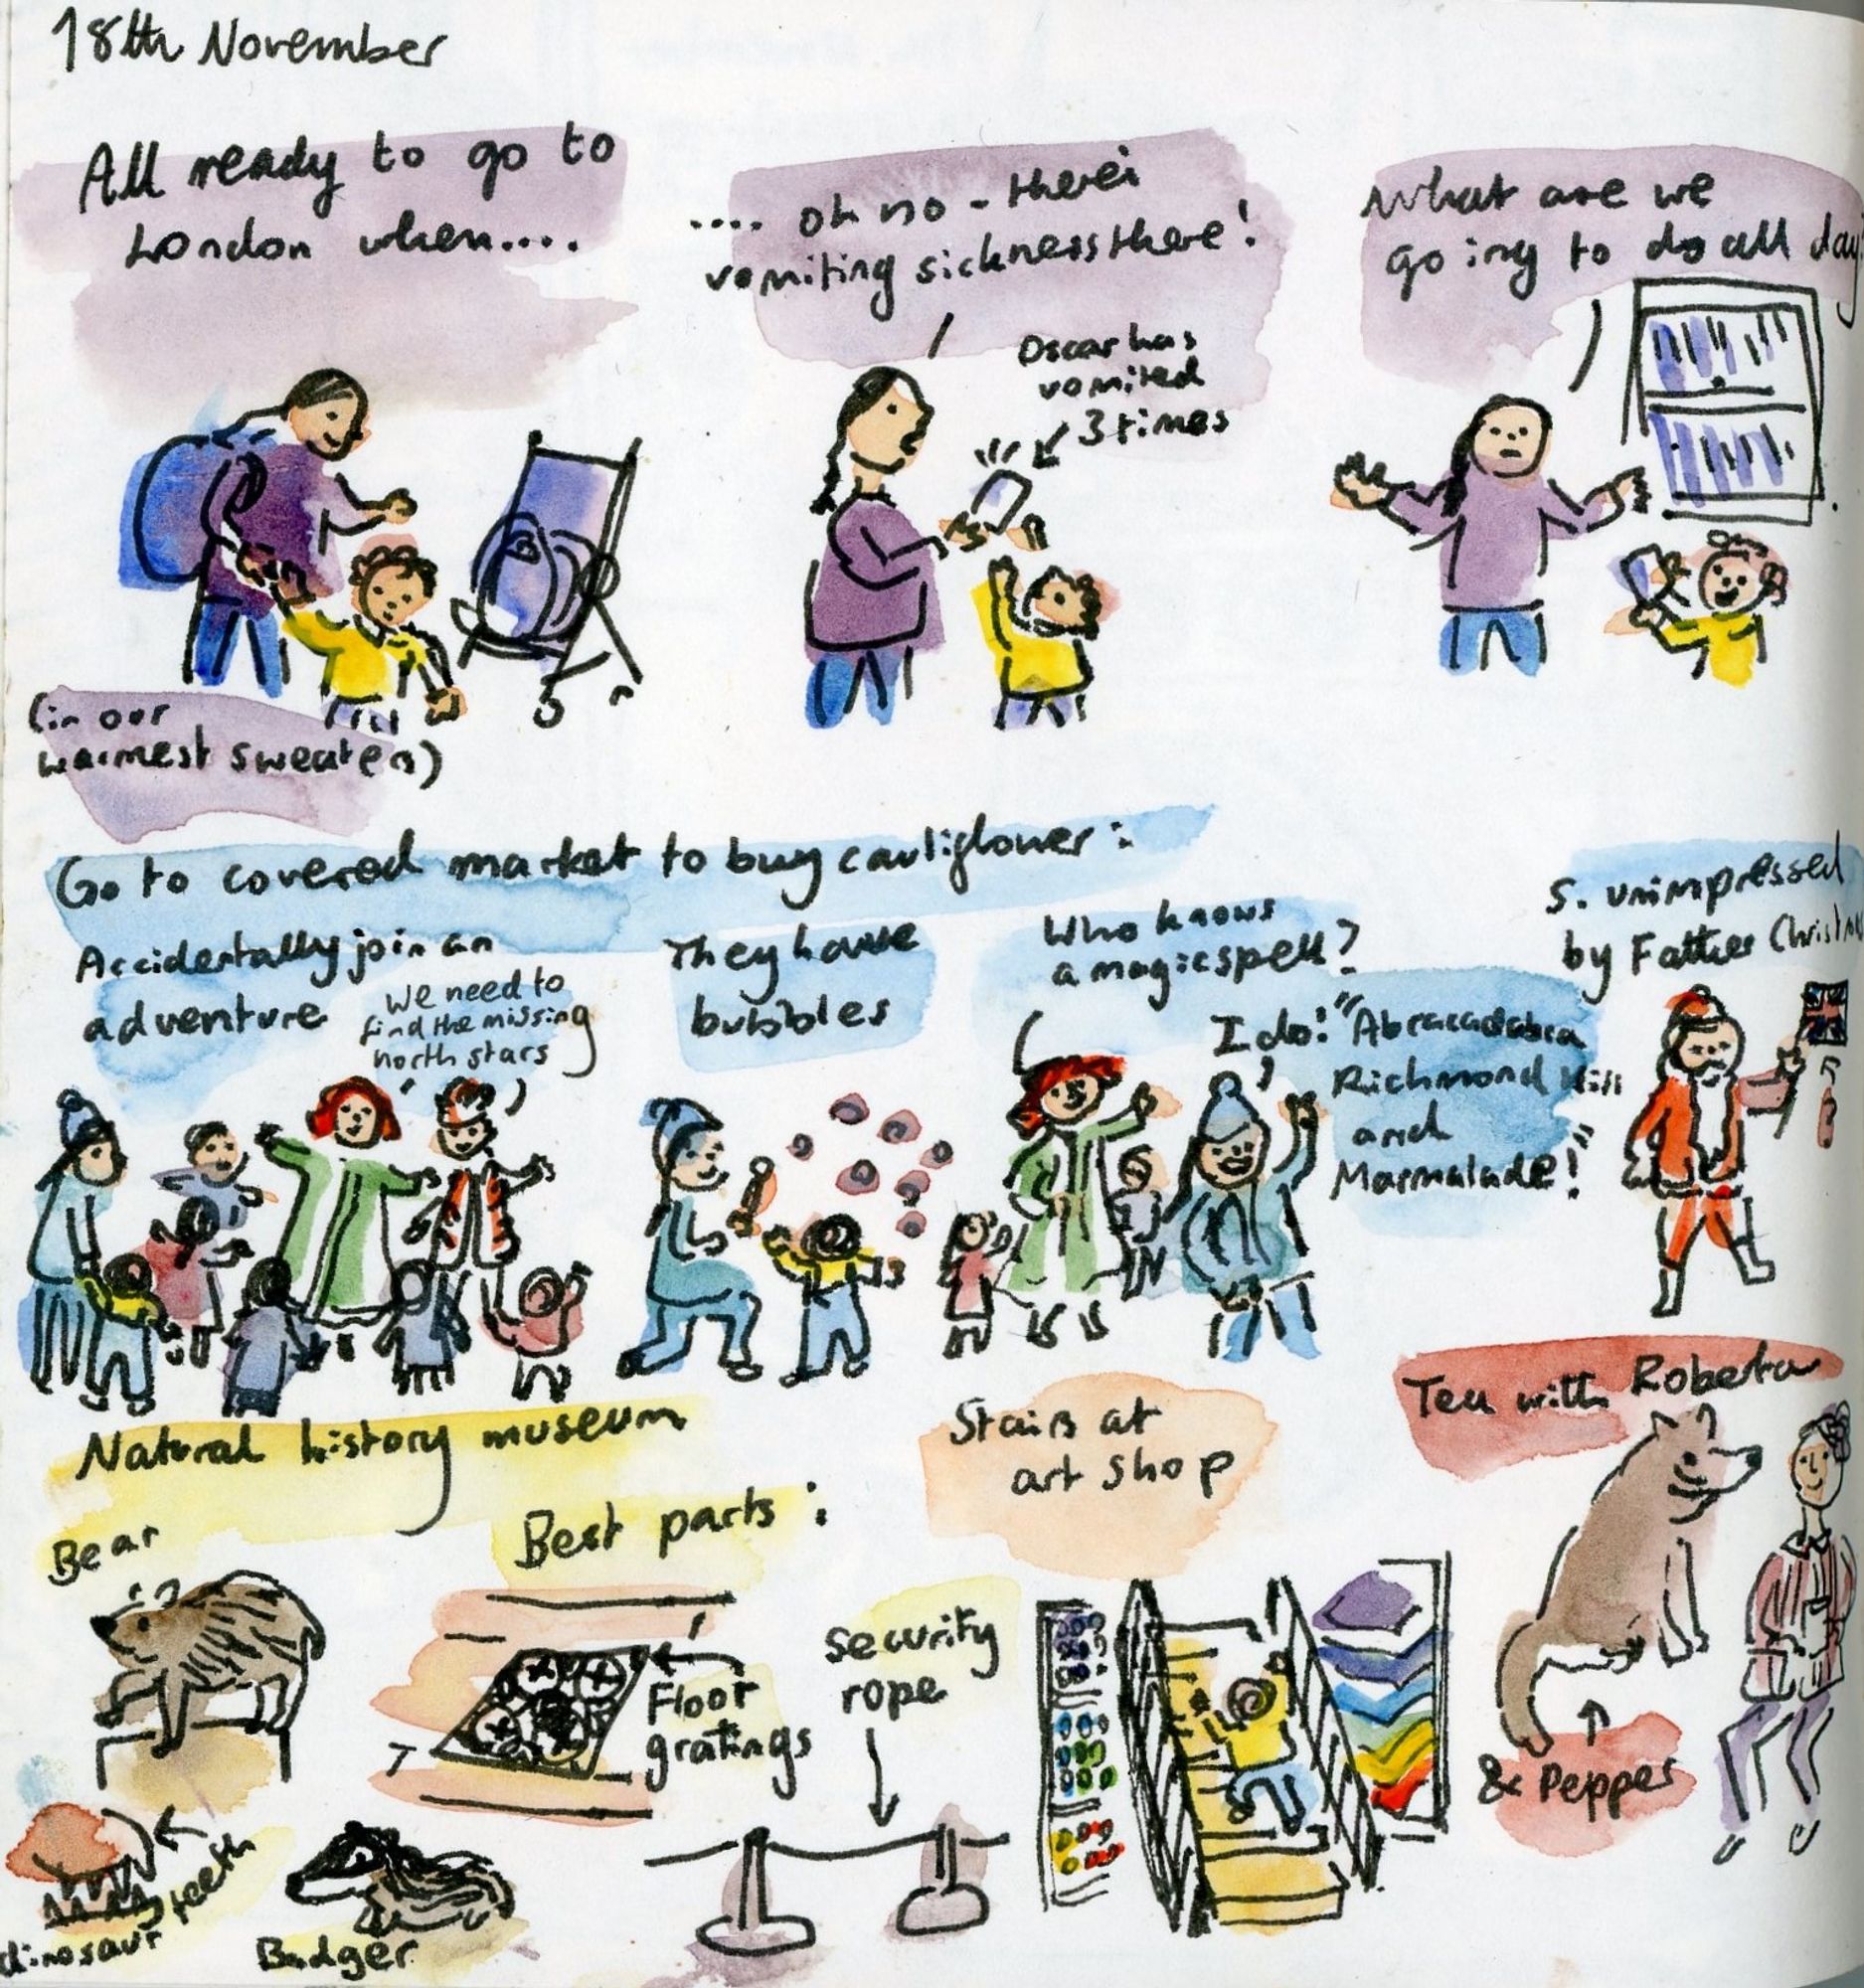 18th November
All ready to go to
London when....
.... oh no - there's
vomiting sickness there!
Oscar has
vomited
3 times
What are we
going to do all day?
(in our
warmest sweaters)
Go to covered market to buy cauliflower:
Accidentally join an
adventure
We need to
find the missing
north stars
They have
bubbles
Who knows
a magic spell?
I do! "Abracadabra
Richmond Hill
and
Marmalade!"
S. unimpressed
by Father Christmas
Natural history museum
Best parts:
Bear
Floor
gratings
security
rope
dinosaur teeth
Badger
Stairs at
art shop
Tea with Roberta
& Pepper